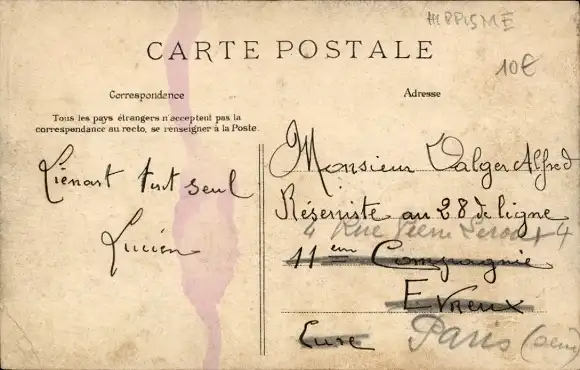 HIPPISME
10€
CARTE POSTALE
Correspondance
Adresse
Tous les pays étrangers n'acceptent pas la
correspondance au recto, se renseigner à la Poste.
Liénart tout seul
Lucien
Monsieur Valger Alfred
Réserviste au 28 de ligne
4 Rue Pierre Leroux 4
11eme Compagnie
Evreux
Eure
Paris (Seine)